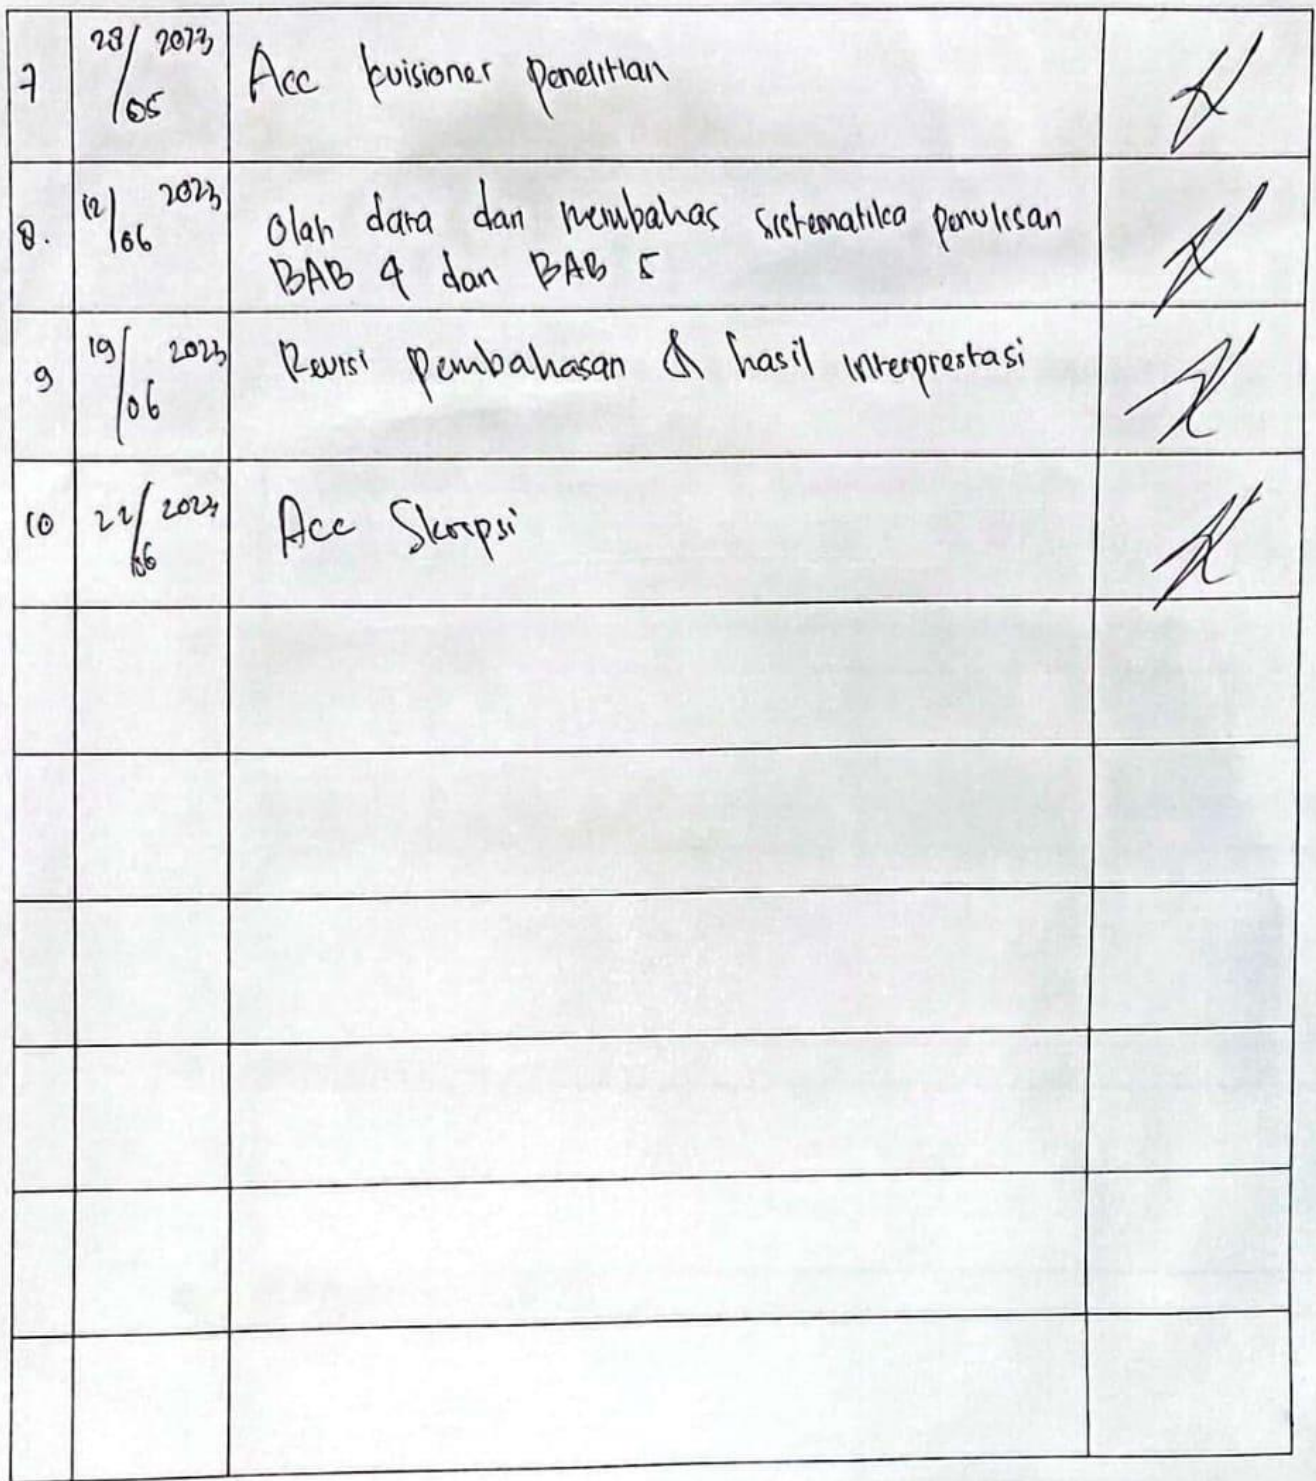 7 28/05 2023 Acc kuisioner penelitian
8. 12/06 2023 Olah data dan membahas sistematika penulisan
BAB 4 dan BAB 5
9 19/06 2023 Revisi pembahasan & hasil interprestasi
10 22/06 2023 Acc Skripsi